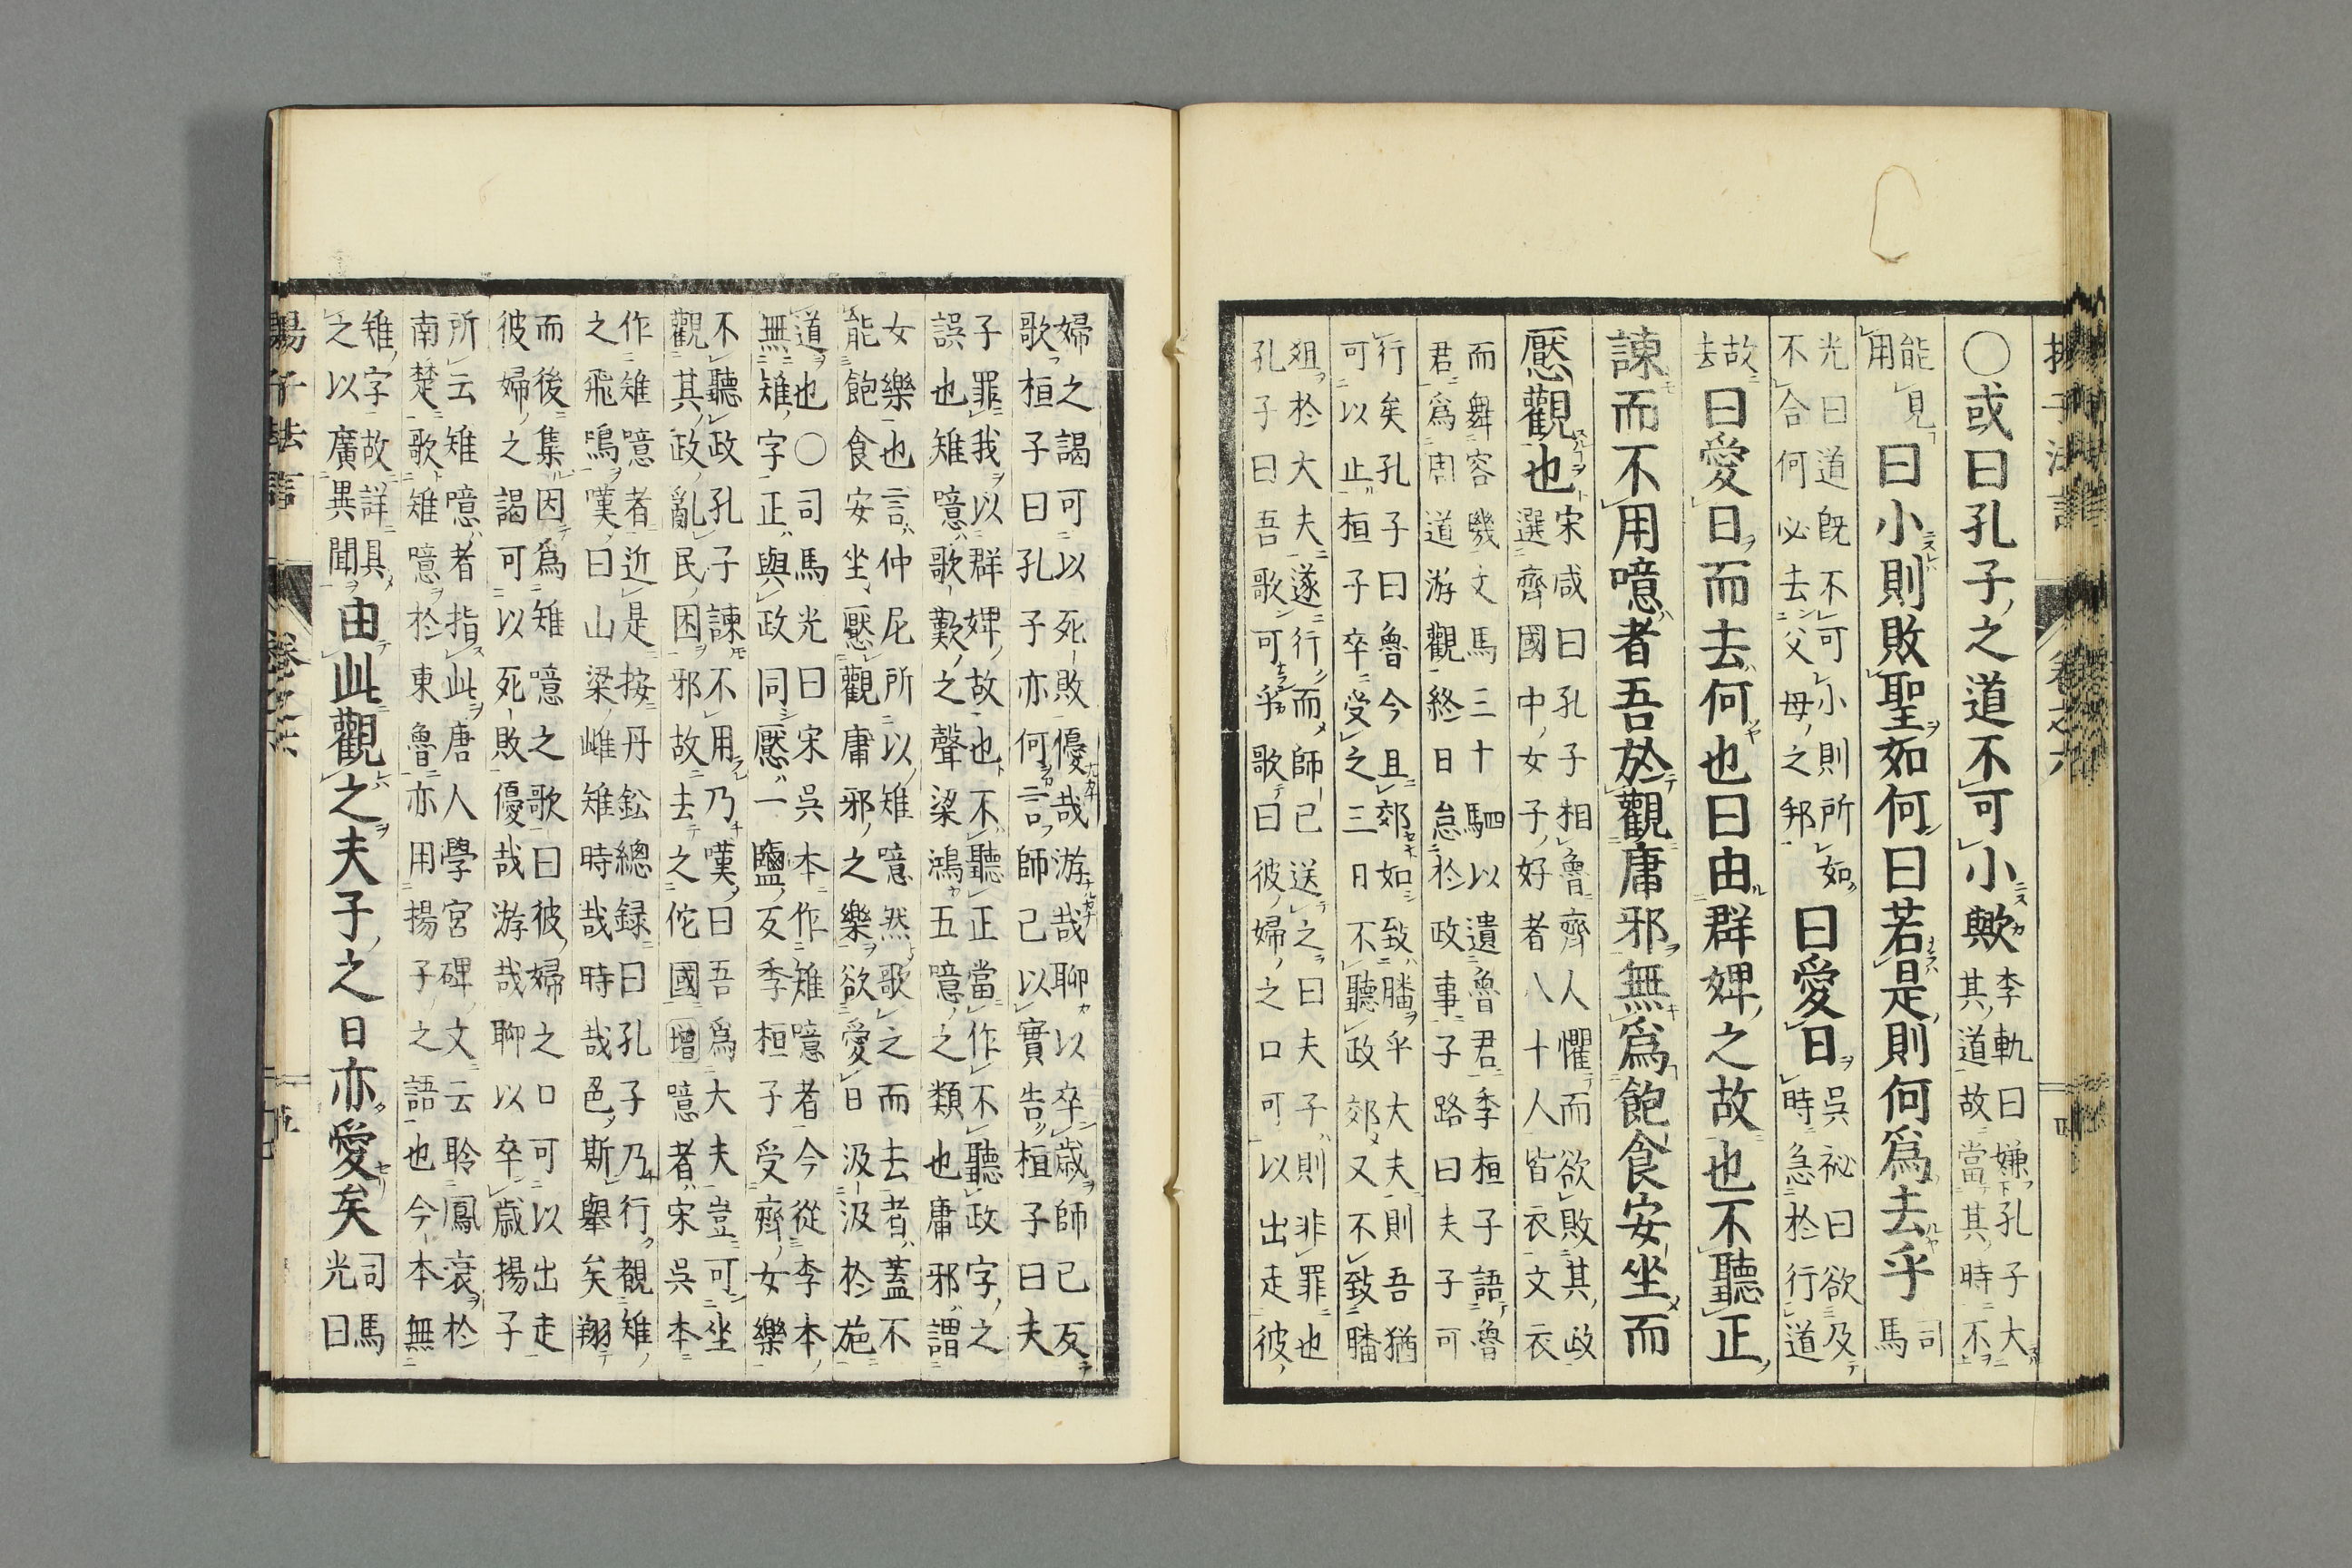 揚子法言 卷之六 四
○或曰孔子之道不可小歟李軌曰嫌孔子大
其道故當其時不
能見
用曰小則敗聖如何曰若是則何爲去乎司
馬
光曰道既不可小則所如
不合何必去父母之邦曰愛日吳祕曰欲及
時急於行道
故
去曰愛日而去何也曰由群婢之故也不聽正
諫而不用噫者吾於觀庸邪無爲飽食安坐而
懕觀也宋咸曰孔子相魯齊人懼而欲敗其政
選齊國中女子好者八十人皆衣文衣
而舞容璣文馬三十駟以遺魯君季桓子語魯
君爲周道游觀終日怠於政事子路曰夫子可
行矣孔子曰魯今且郊如致膰乎大夫則吾猶
可以止桓子卒受之三日不聽政郊又不致膰
俎於大夫遂行而師已送之曰夫子則非罪也
孔子曰吾歌可乎歌曰彼婦之口可以出走彼
婦之謁可以死敗優哉游哉聊以卒歳師已反
歌桓子曰孔子亦何言師己以實告桓子曰夫
子罪我以群婢故也不聽正當作不聽政字之
誤也雉噫歌歎之聲梁鴻五噫之類也庸邪謂
女樂也言仲尼所以雉噫然歌之而去者蓋不
能飽食安坐懕觀庸邪之樂欲愛日汲汲於施
道也○司馬光曰宋吳本作雉噫者今從李本
無雉字正與政同懕一鹽反季桓子受齊女樂
不聽政孔子諫不用乃嘆曰吾爲大夫豈可坐
觀其政亂民困邪故去之佗國增噫者宋吳本
作雉噫者近是按丹鉛總録曰孔子乃行觀雉
之飛鳴嘆曰山梁雌雉時哉時哉色斯舉矣翔
而後集因爲雉噫之歌曰彼婦之口可以出走
彼婦之謁可以死敗優哉游哉聊以卒歳揚子
所云雉噫者指此唐人學宮碑文云聆鳳衰於
南楚歌雉噫於東魯亦用揚子之語也今本無
雉字故詳具
之以廣異聞由此觀之夫子之日亦愛矣司馬
光曰
揚子法言 卷之六 五